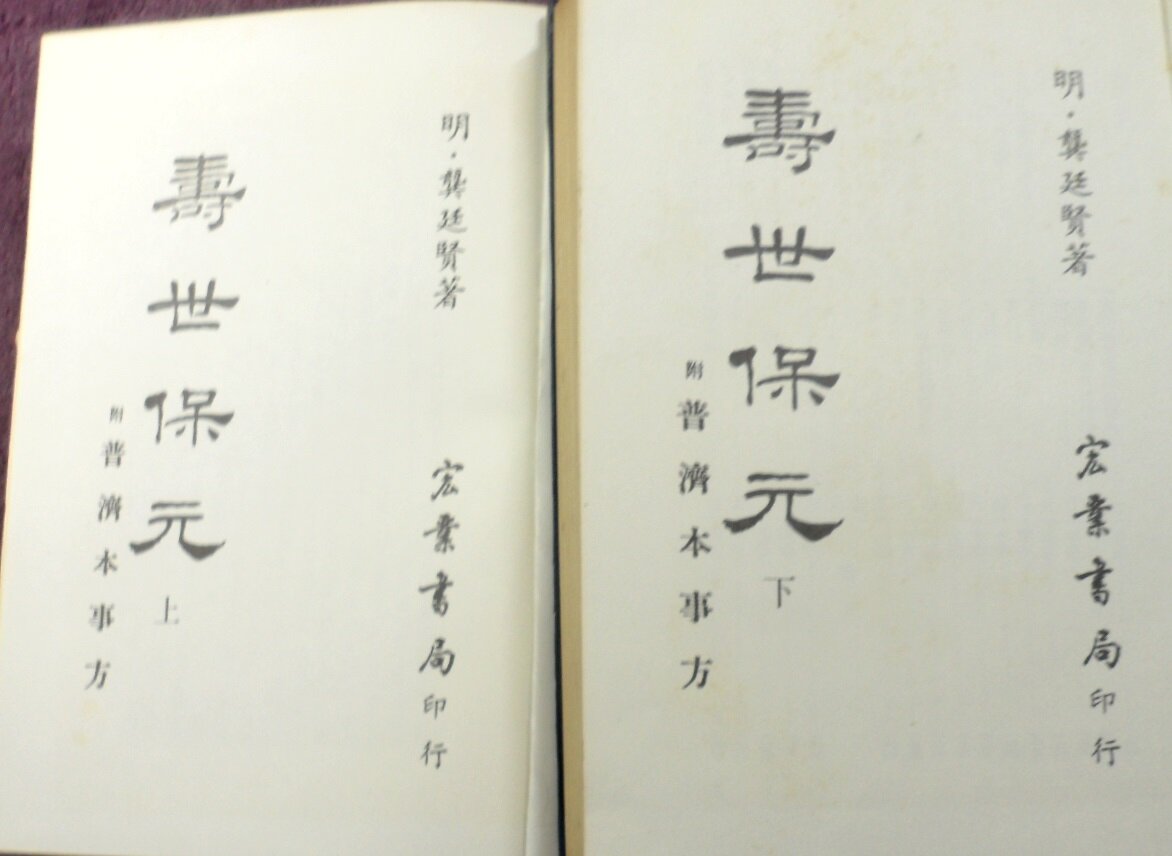 明·龔廷賢著
宏業書局印行
壽世保元上
附普濟本事方
明·龔廷賢著
宏業書局印行
壽世保元下
附普濟本事方